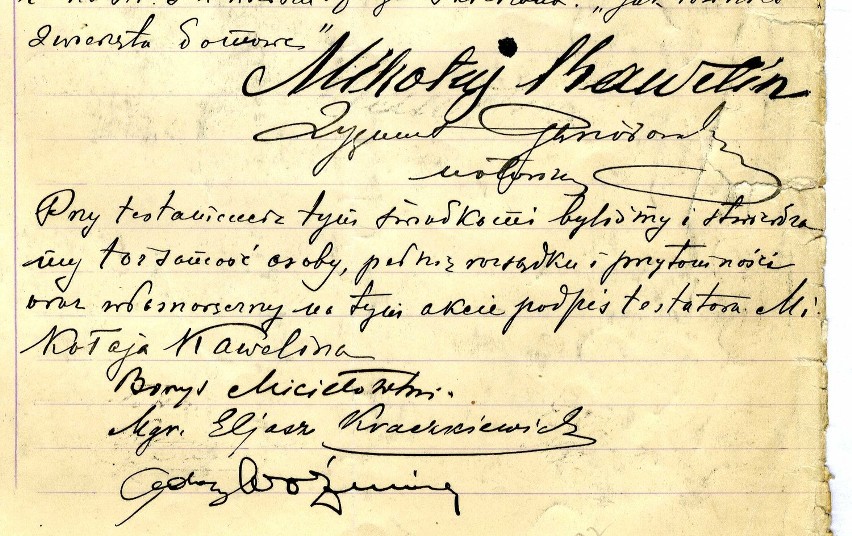 zwierzęta domowe"
Mikołaj Kawelin
Zygmunt
notarjusz
Przy testamencie tym świadkami byliśmy i stwierdza
my tożsamość osoby, pełnię rozsądku i przytomności
oraz własnoręczny na tym akcie podpis testatora Mi
kołaja Kawelina
Borys
Mgr. Eljasz Kraczkiewicz